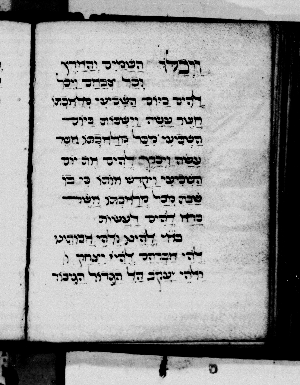 ויכלו השמים והארץ
וכל צבאם ויכל
אלהים ביום השביעי מלאכתו
אשר עשה וישבות ביום
השביעי מכל מלאכתו אשר
עשה ויברך אלהים את יום
השביעי ויקדש אותו כי בו
שבת מכל מלאכתו אשר
ברא אלהים לעשות
אלהינו ואלהי אבותינו
אלהי אברהם אלהי יצחק
ואלהי יעקב האל הגדול הגיבור